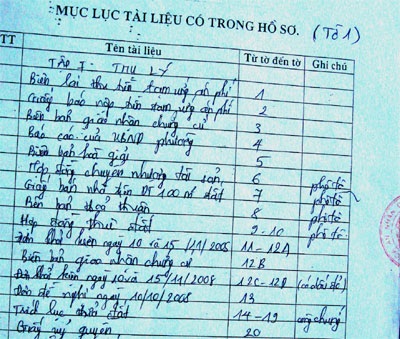 MỤC LỤC TÀI LIỆU CÓ TRONG HỒ SƠ. (Tờ 1)
TT Tên tài liệu Từ tờ đến tờ Ghi chú
TẬP I: THỤ LÝ
Biên lai thu tiền tạm ứng án phí 1
Giấy báo nộp tiền tạm ứng án phí 2
Biên bản giao nhận chứng cứ 3
Báo cáo của UBND phường 4
Biên bản hoà giải 5
Hợp đồng chuyển nhượng tài sản 6 phô tô
Giấy bán nhà trên DT 100 m² đất 7 phô tô
Biên bản thoả thuận 8 phô tô
Hợp đồng thuê đất 9-10 phô tô
Đơn khởi kiện ngày 10 và 15/11/2008 11-12A
Biên bản giao nhận chứng cứ 12B
Đơn khởi kiện ngày 10 và 15/11/2008 12C-12D (có dấu
Đơn đề nghị ngày 10/10/2008 13
Trích lục thửa đất 14-19 công chứng
Giấy uỷ quyền 20